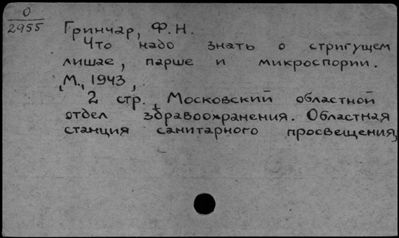 0
2955
Гринчар, Ф.Н.
Что надо знать о стригущем
лишае, парше и микроспории.
М., 1943,
2 стр. Московский областной
отдел здравоохранения. Областная
станция санитарного просвещения,